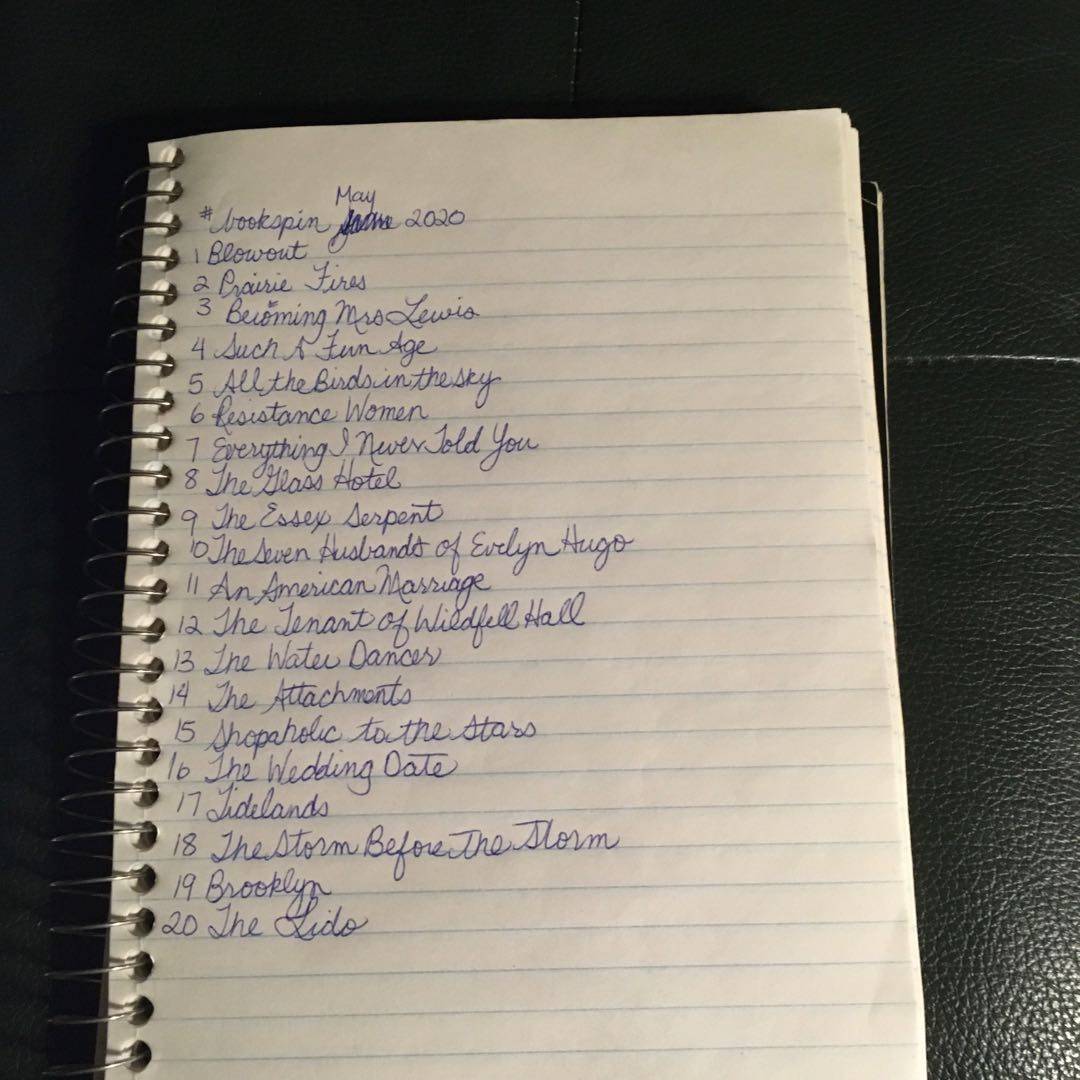 May
#bookspin June 2020
1 Blowout
2 Prairie Fires
3 Becoming Mrs Lewis
4 Such A Fun Age
5 All the Birds in the Sky
6 Resistance Women
7 Everything I Never Told You
8 The Glass Hotel
9 The Essex Serpent
10 The Seven Husbands of Evelyn Hugo
11 An American Marriage
12 The Tenant of Wildfell Hall
13 The Water Dancer
14 The Attachments
15 Shopaholic to the Stars
16 The Wedding Date
17 Tidelands
18 The Storm Before The Storm
19 Brooklyn
20 The Lido